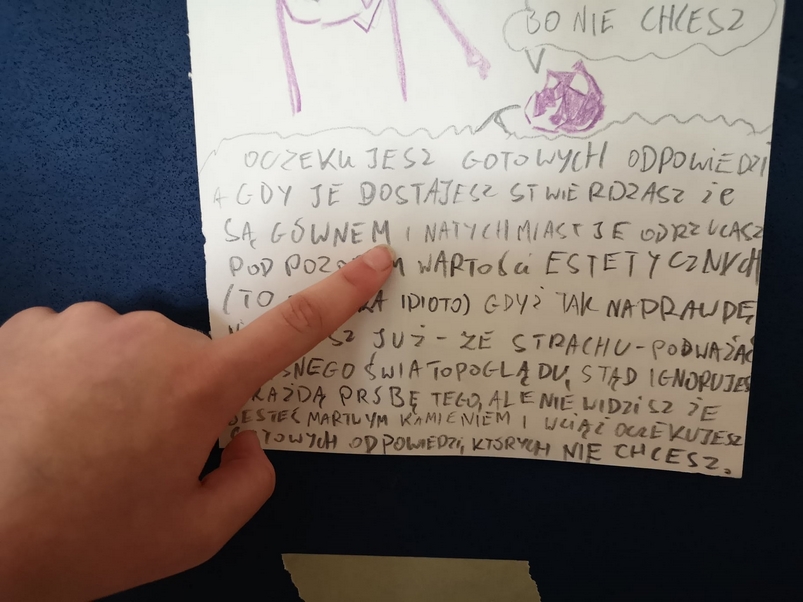 BO NIE CHCESZ
OCZEKUJESZ GOTOWYCH ODPOWIEDZI
A GDY JE DOSTAJESZ STWIERDZASZ że
SĄ GÓWNEM I NATYCHMIAST JE ODRZUCASZ
POD WARTOści ESTETYCZNYCH
(TO IDIOTO) GDYż TAK NAPRAWDĘ
JUŻ - ZE STRACHU - PODWAŻAĆ
ŚWIATOPOGLĄDU, STĄD IGNORUJESZ
KAŻDĄ PRSBĘ TEGO, ALE NIE WIDZISZ ŻE
JESTEŚ MARTWYM KAMIENIEM I WCIĄŻ OCZEKUJESZ
GOTOWYCH ODPOWIEDZI, KTÓRYCH NIE CHCESZ.